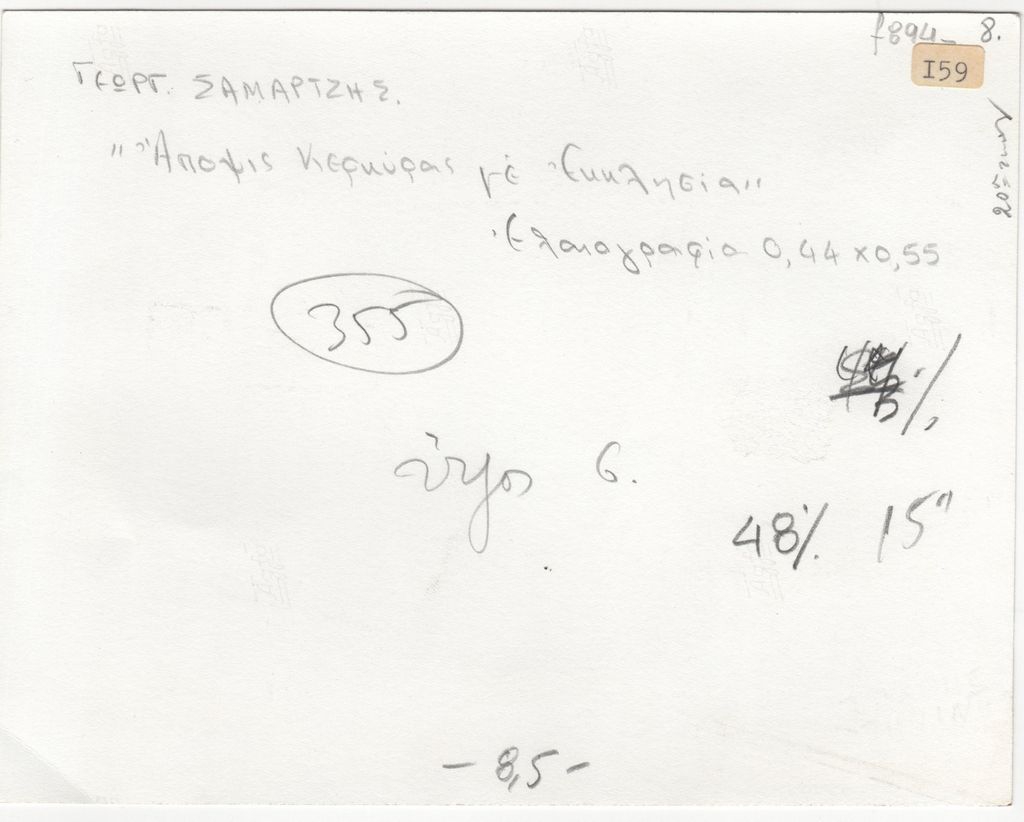 f894- 8.
I59
ΓΕΩΡΓ. ΣΑΜΑΡΤΖΗΣ.
"Ἄποψις Κερκύρας μέ Ἐκκλησία"
Ἐλαιογραφία 0,44 x 0,55
355
ὕψος 6.
48% 15"
- 8,5 -